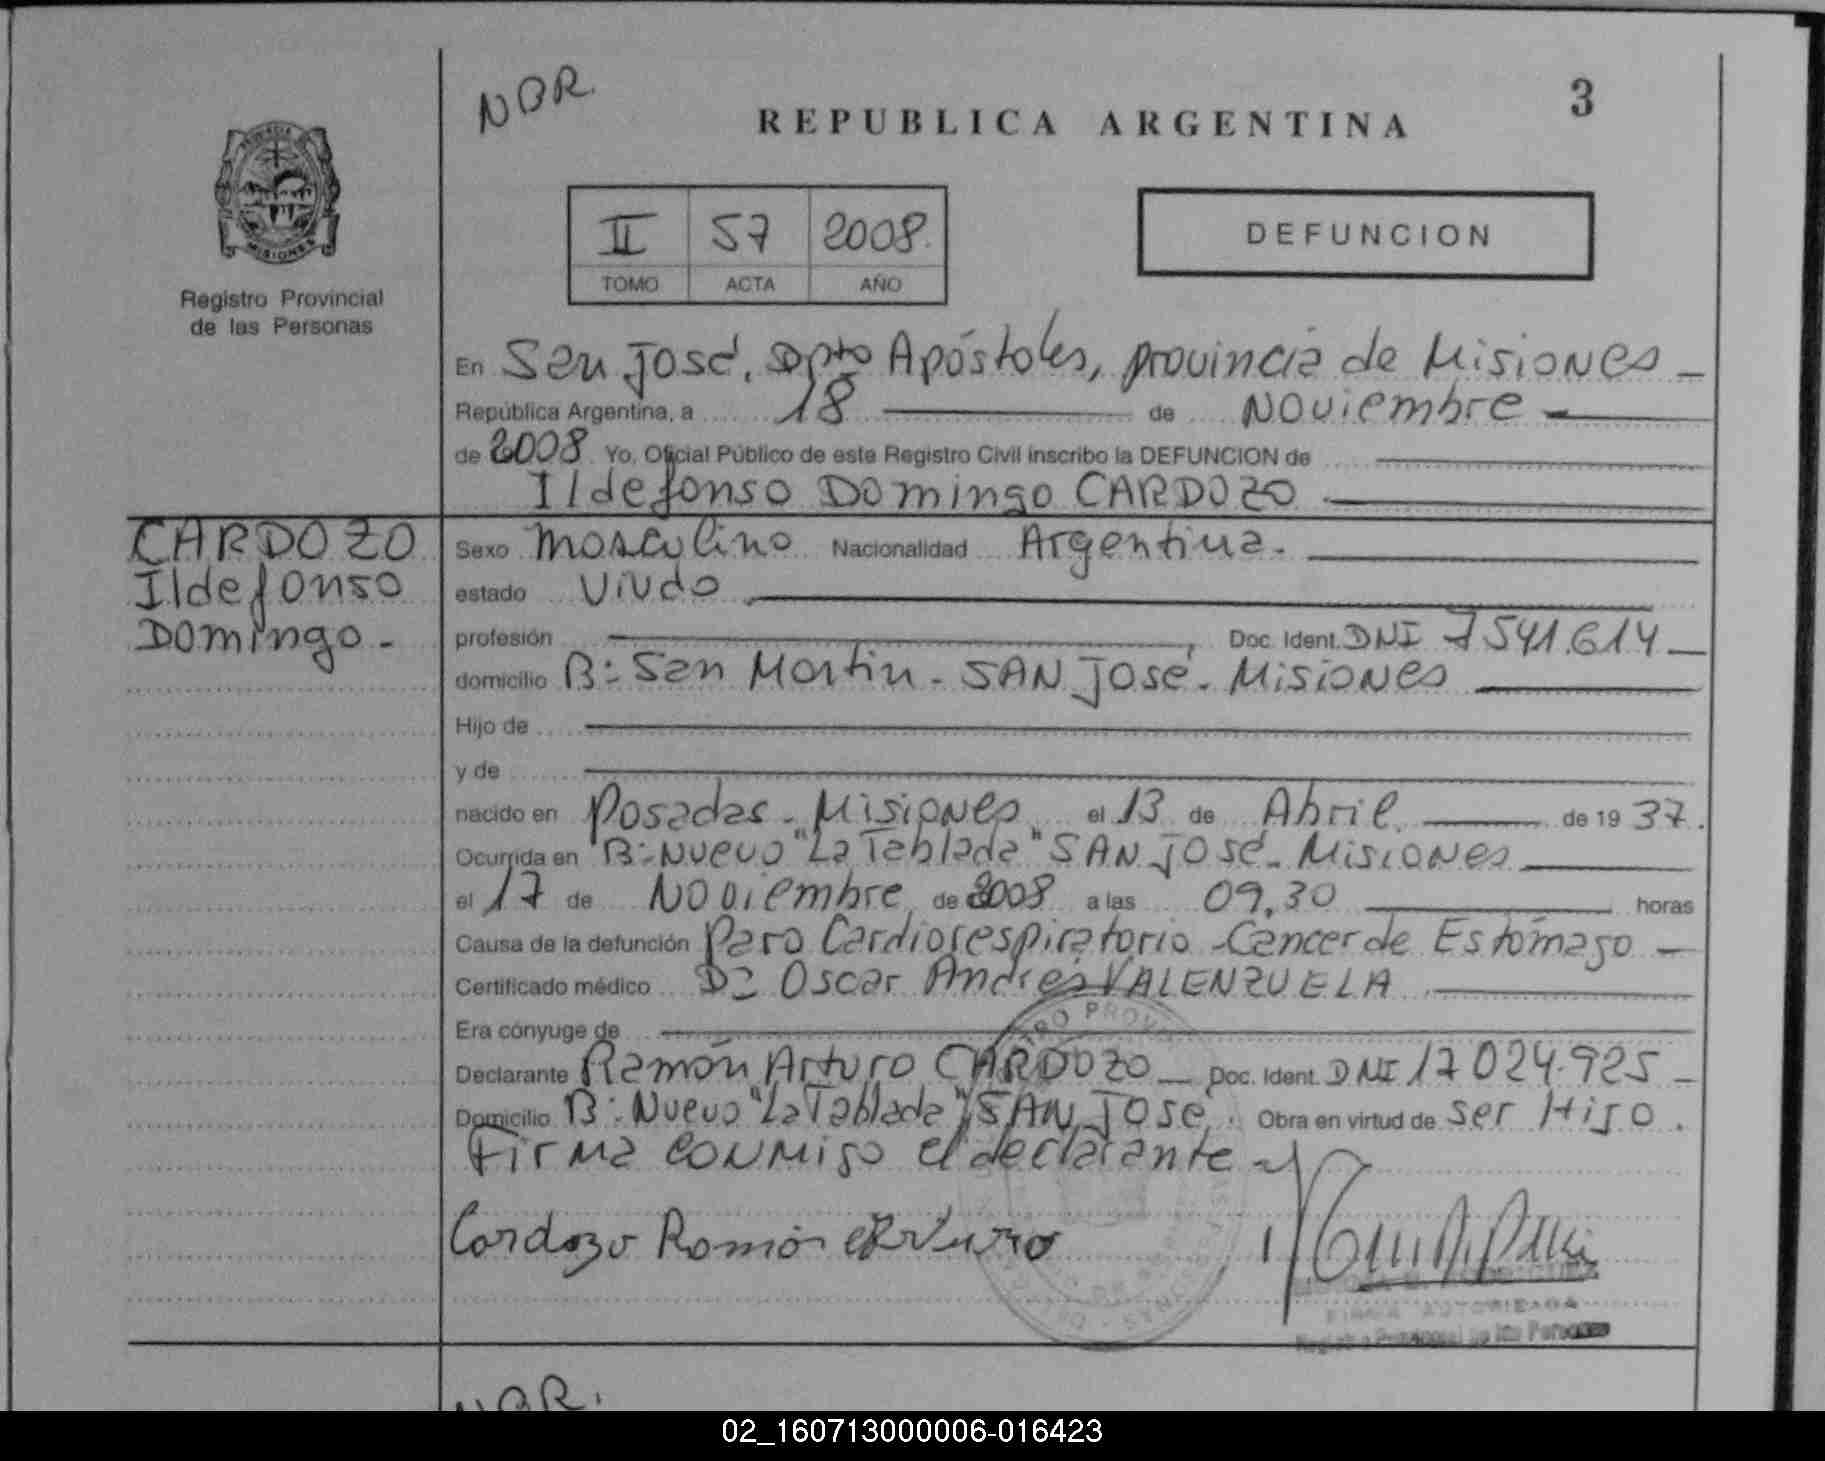 NBR.
REPUBLICA ARGENTINA
3
MISIONES
Registro Provincial
de las Personas
II 57 2008.
TOMO ACTA AÑO
DEFUNCION
En San José, Dpto Apóstoles, provincia de Misiones
República Argentina, a 18 de Noviembre
de 2008 Yo, Oficial Público de este Registro Civil inscribo la DEFUNCION de
Ildefonso Domingo CARDOZO
CARDOZO
Ildefonso
Domingo -
Sexo masculino Nacionalidad Argentina.
estado Viudo
profesión Doc. Ident. DNI 7541.614
domicilio B: San Martin - SAN José - Misiones
Hijo de
y de
nacido en Posadas - Misiones el 13 de Abril de 19 37.
Ocurrida en B: Nuevo "La Tablada" SAN José - Misiones
el 17 de Noviembre de 2008 a las 09,30 horas
Causa de la defunción Paro Cardiorespiratorio - Cancer de Estómago
Certificado médico Dr Oscar Andrés VALENZUELA
Era cónyuge de
Declarante Ramón Arturo CARDOZO Doc. Ident. DNI 17024.925
Domicilio B: Nuevo "La Tablada" SAN José. Obra en virtud de ser Hijo.
Firma conmigo el declarante
Cardozo Ramón Arturo
FIRMA AUTORIZADA
Registro Provincial de las Personas
NBR.
02_160713000006-016423